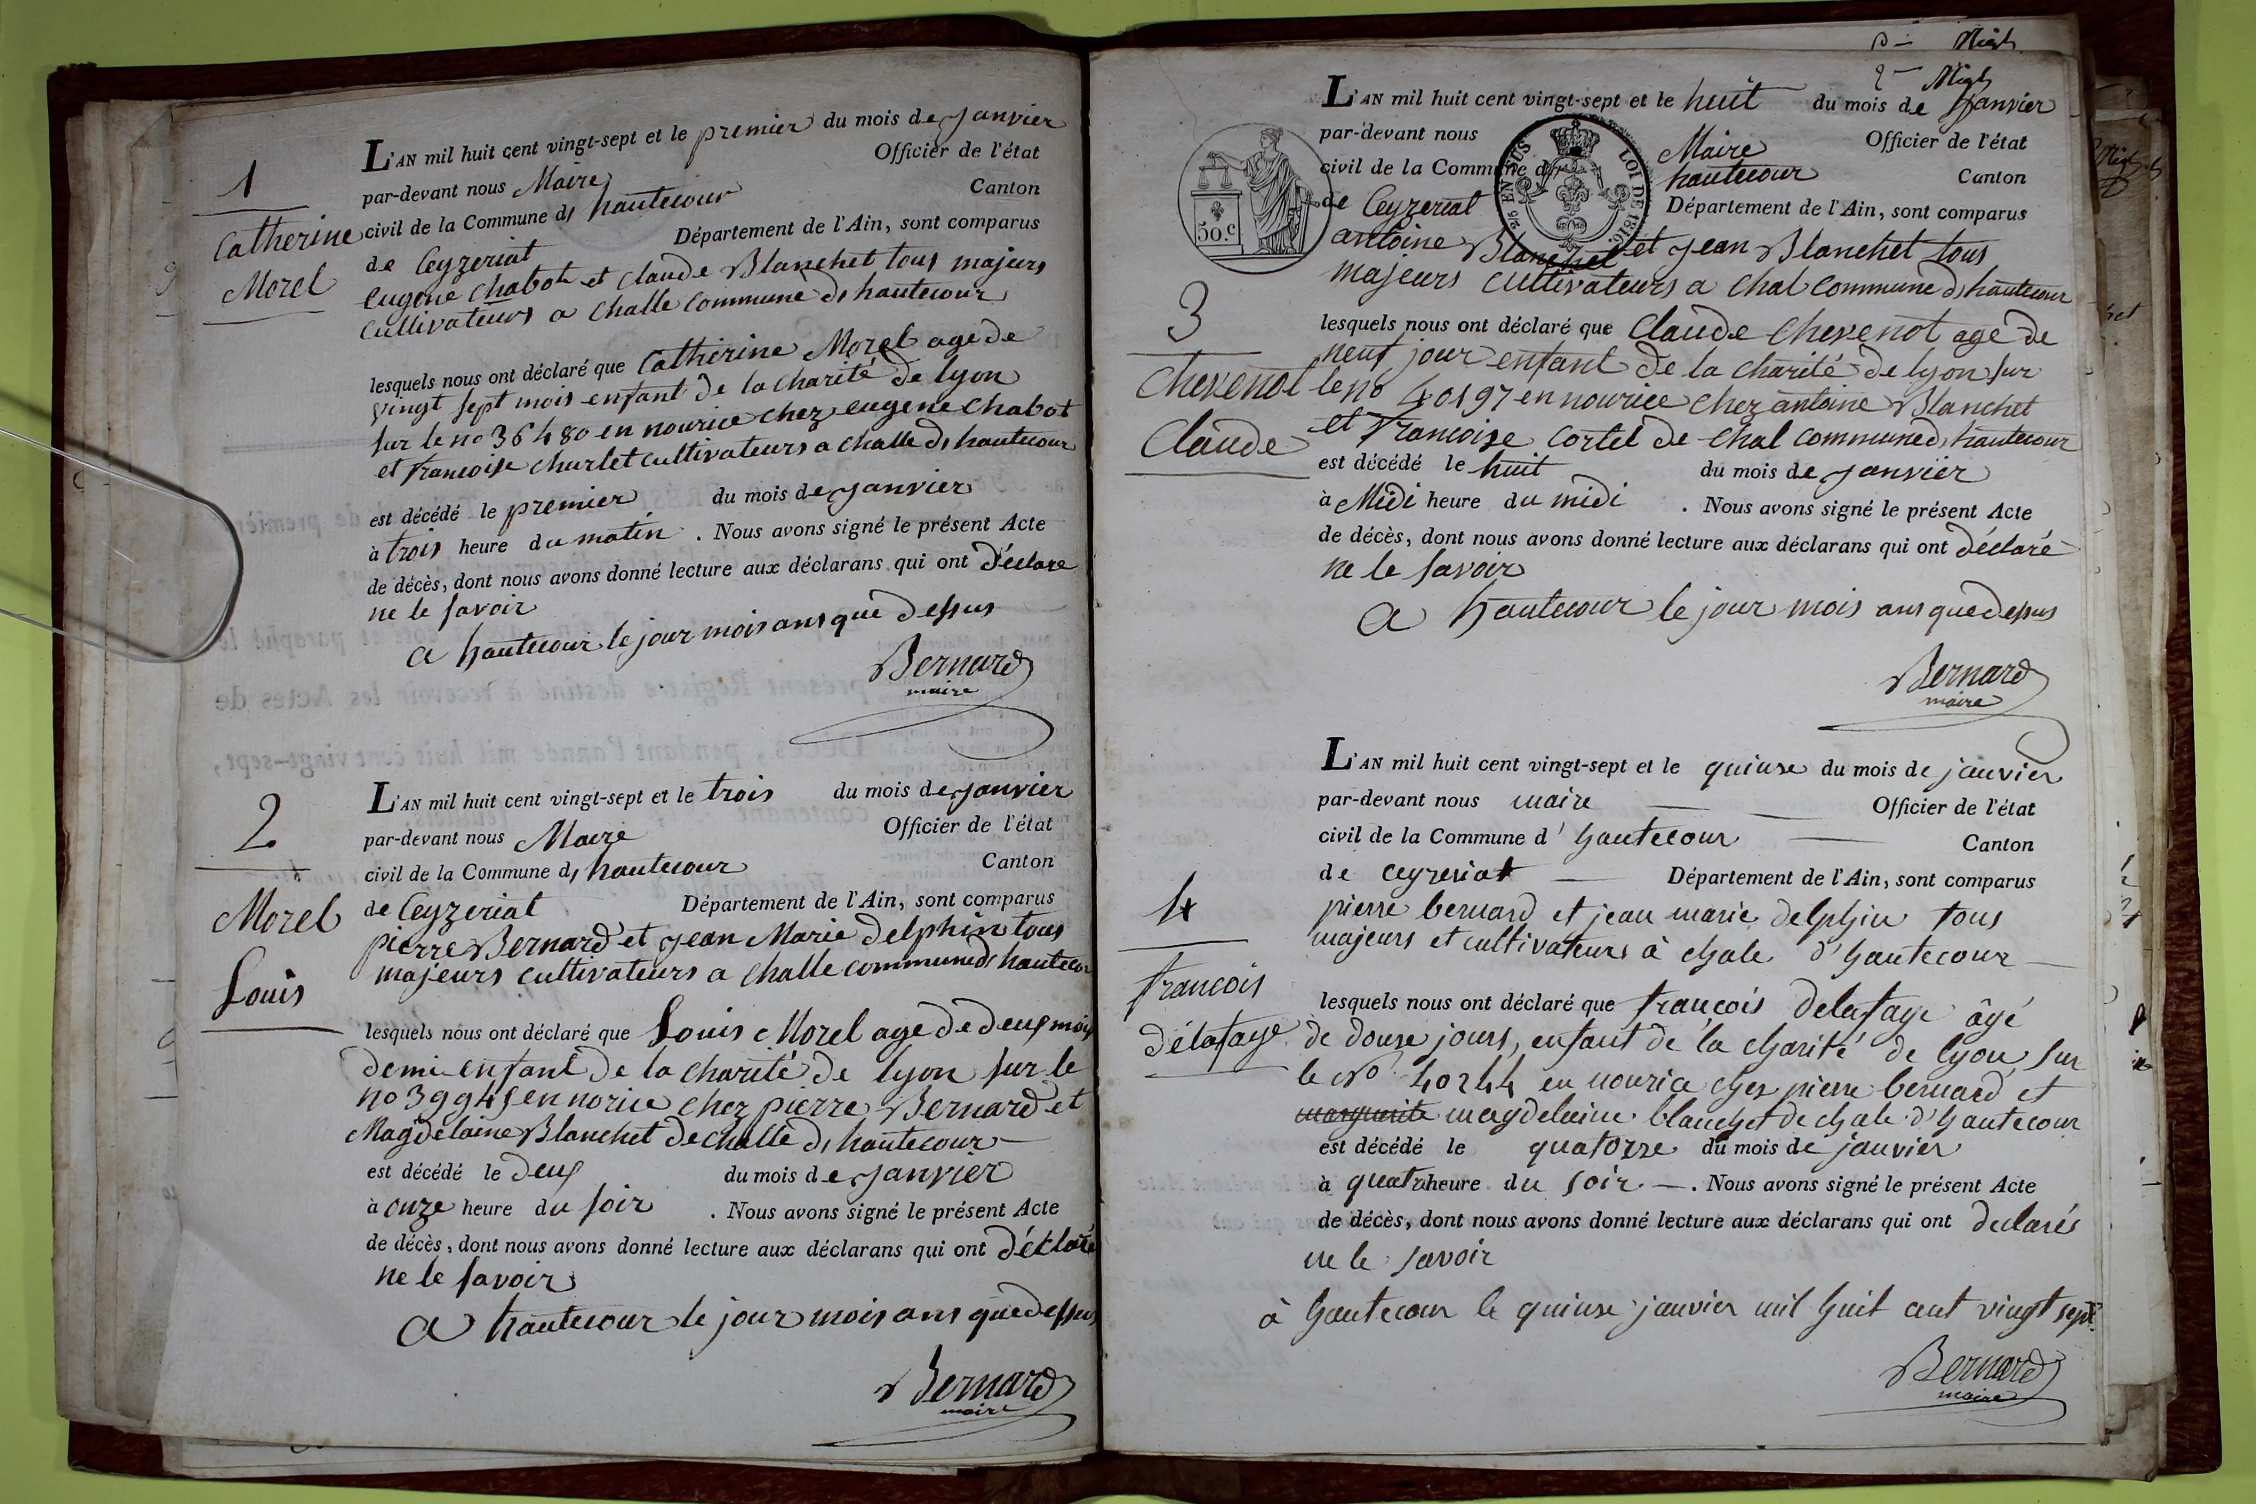 1
Catherine
Morel
L'AN mil huit cent vingt-sept et le premier du mois de Janvier
par-devant nous Maire Officier de l'état
civil de la Commune d, hautecour Canton
de Ceyzeriat Département de l'Ain, sont comparus
eugene chabot et claude Blanchet tous majeurs
cultivateurs a challe commune d, hautecour
lesquels nous ont déclaré que Catherine Morel age de
vingt sept mois enfant de la charité de lyon
sur le no 36480 en nourice chez eugene chabot
et francoise churlet cultivateurs a challe d, hautecour
est décédé le premier du mois de Janvier
à trois heure du matin . Nous avons signé le présent Acte
de décès, dont nous avons donné lecture aux déclarans qui ont déclare
ne le savoir
a hautecour le jour mois ans que dessus
Bernard
maire
2
Morel
Louis
L'AN mil huit cent vingt-sept et le trois du mois de Janvier
par-devant nous Maire Officier de l'état
civil de la Commune d, hautecour Canton
de Ceyzeriat Département de l'Ain, sont comparus
pierre Bernard et Jean Marie delphin tous
majeurs cultivateurs a challe commune d, hautecour
lesquels nous ont déclaré que Louis Morel age de deux mois
demi enfant de la charité de lyon sur le
no 39945 en norice chez pierre Bernard et
Magdelaine Blanchet de challe d, hautecour
est décédé le deux du mois de Janvier
à onze heure du soir . Nous avons signé le présent Acte
de décès, dont nous avons donné lecture aux déclarans qui ont déclaré
ne le savoir
a hautecour le jour mois ans que dessus
Bernard
maire
50.c
EN SUS LOI DE 1816.
3
Chevenot
Claude
L'AN mil huit cent vingt-sept et le huit du mois de Janvier
par-devant nous Maire Officier de l'état
civil de la Commune d, hautecour Canton
de Ceyzeriat Département de l'Ain, sont comparus
antoine Blanchet et Jean Blanchet tous
majeurs cultivateurs a chal commune d, hautecour
lesquels nous ont déclaré que Claude Chevenot age de
neuf jour enfant de la charité de lyon sur
le no 40197 en nourice chez antoine Blanchet
et francoise cortel de chal commune d, hautecour
est décédé le huit du mois de Janvier
à Midi heure du midi . Nous avons signé le présent Acte
de décès, dont nous avons donné lecture aux déclarans qui ont déclaré
ne le savoir
a hautecour le jour mois ans que dessus
Bernard
maire
4
francois
délafaye
L'AN mil huit cent vingt-sept et le quinse du mois de janvier
par-devant nous maire Officier de l'état
civil de la Commune d' hautecour Canton
de ceyzeriat Département de l'Ain, sont comparus
pierre bernard et jean marie delphin tous
majeurs et cultivateurs à chale d'hautecour
lesquels nous ont déclaré que françois delafaye âgé
de douse jours, enfant de la charité de lyon sur
le no 40244 en nourice ches pierre bernard et
marguerite magdelaine blanchet de chale d'hautecour
est décédé le quatorze du mois de janvier
à quatre heure du soir . Nous avons signé le présent Acte
de décès, dont nous avons donné lecture aux déclarans qui ont declarés
ne le savoir
à hautecour le quinse janvier mil huit cent vingt sept.
Bernard
maire